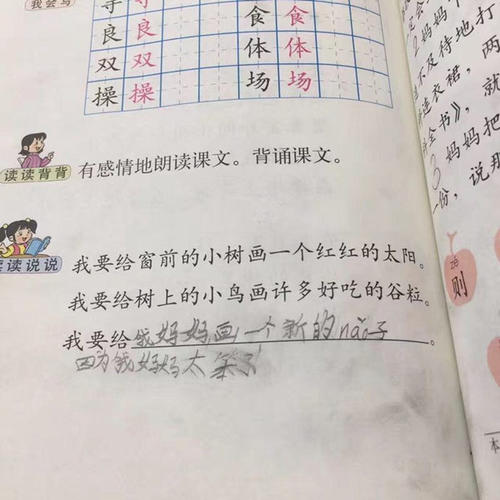 我会写
寻 寻
良 良 食 食
双 双 体 体
操 操 场 场
读读背背 有感情地朗读课文。背诵课文。
读读说说
我要给窗前的小树画一个红红的太阳。
我要给树上的小鸟画许多好吃的谷粒。
我要给我妈妈画一个新的nǎo子。
因为我妈妈太笨了
妈妈
不及待地打
衣裙，两
全书》，就
3妈妈把
份，说那
则
本